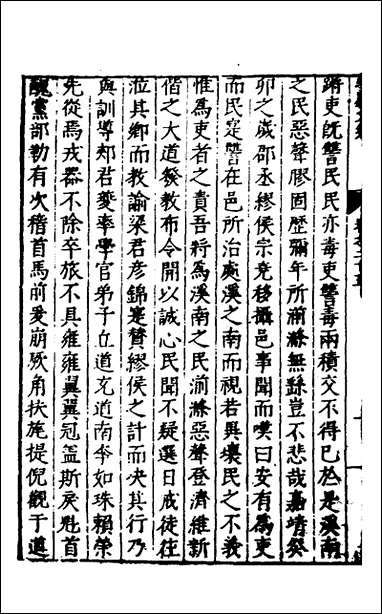 蹐吏既讐民民亦毒吏讐毒兩積交不得已於是溪南
之民惡聲膠固歷彌年所湔滌無繇豈不悲哉嘉靖癸
卯之歲郡丞繆侯宗堯移攝邑事聞而嘆曰安有為吏
而民寔讐在邑所治處溪之南而視若異壤民之不義
惟為吏者之責吾將為溪南之民湔滌惡聲登濟維新
偕之大道發教布令開以誠心民聞不疑選日戒徒往
涖其鄉而教諭梁君彥錦寔贊繆侯之計而決其行乃
與訓導郟君夔率學官弟子立道充道南岑如珠賴榮
先從焉戎器不除卒旅不具雍雍翼翼冠蓋斯戾魁首
醜黨部勒有次稽首馬前爰崩厥角扶旄提倪觀于道